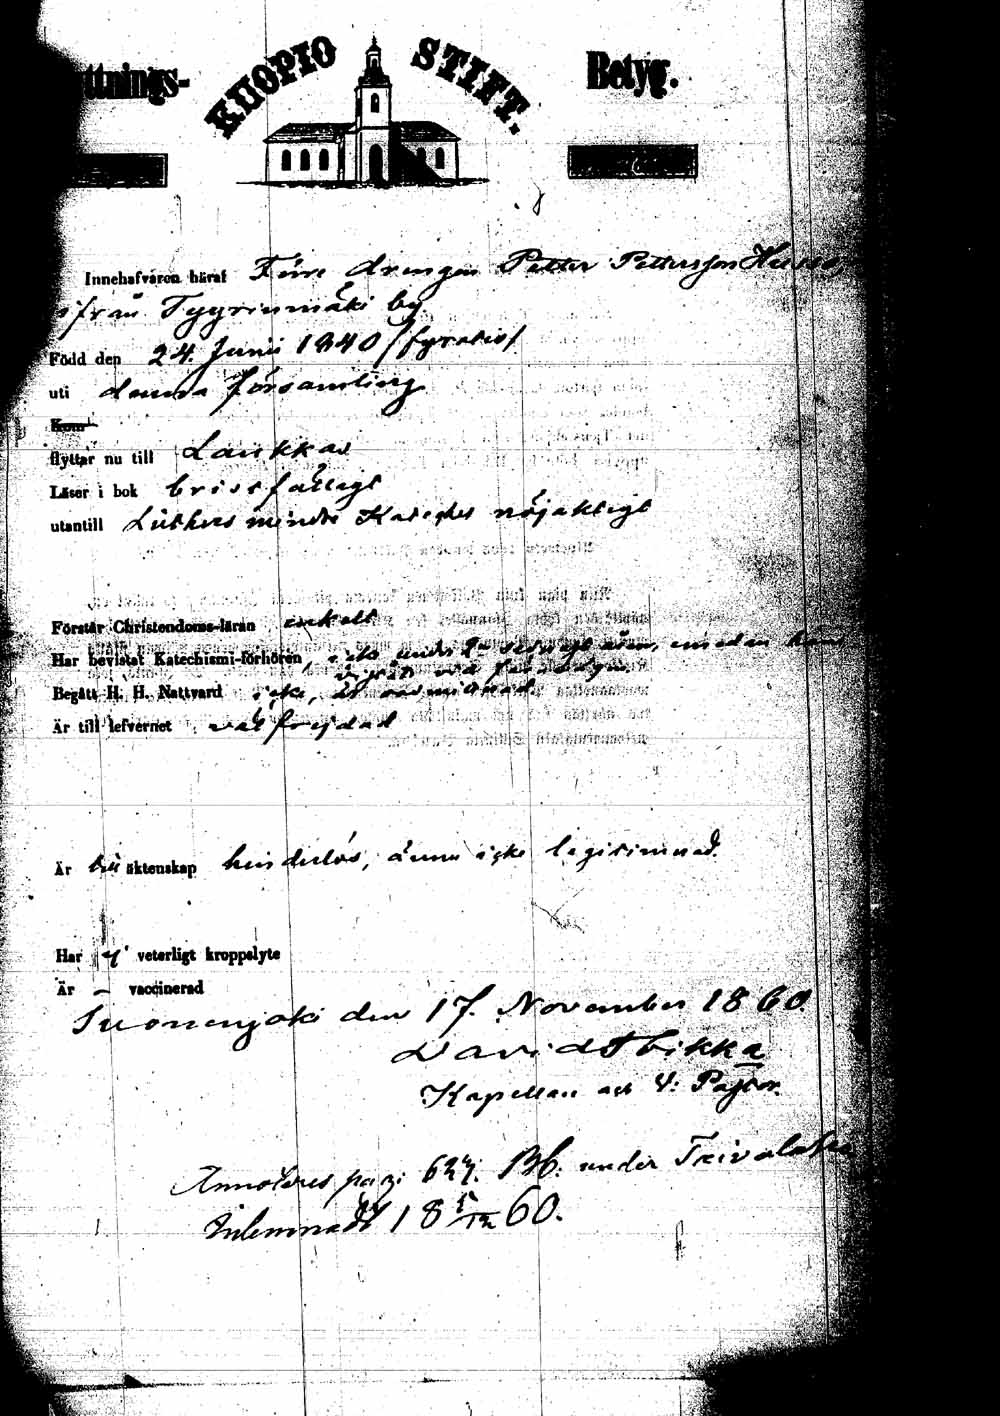 ttnings-
KUOPIO STIFT.
Betyg.
Innehafvaren häraf Före drengen Petter Pettersson
ifrån Tyyrinmäki by
Född den 24. Junii 1840 /fyratio/
uti denna församling
Kom
flyttar nu till Laukkas
Läser i bok bristfälligt
utantill Luthers mindre Kateches nöjaktigt
Förstår Christendoms-läran enkelt
Har bevistat Katechismi-förhören, icke under 2ne sednast åren, emedan han
Begått H. H. Nattvard icke, är oadmitterad
Är till lefvernet välfrejdad
Är till äktenskap hinderlös, ännu icke legitimerad.
Har ej veterligt kroppslyte
Är – vaccinerad
Suonenjoki den 17. November 1860.
David Stickka
Kapellan och V: Pastor.
Annoteres pagi 627. BB. under Trivalakka
Inlemnadt 18 5/12 60.